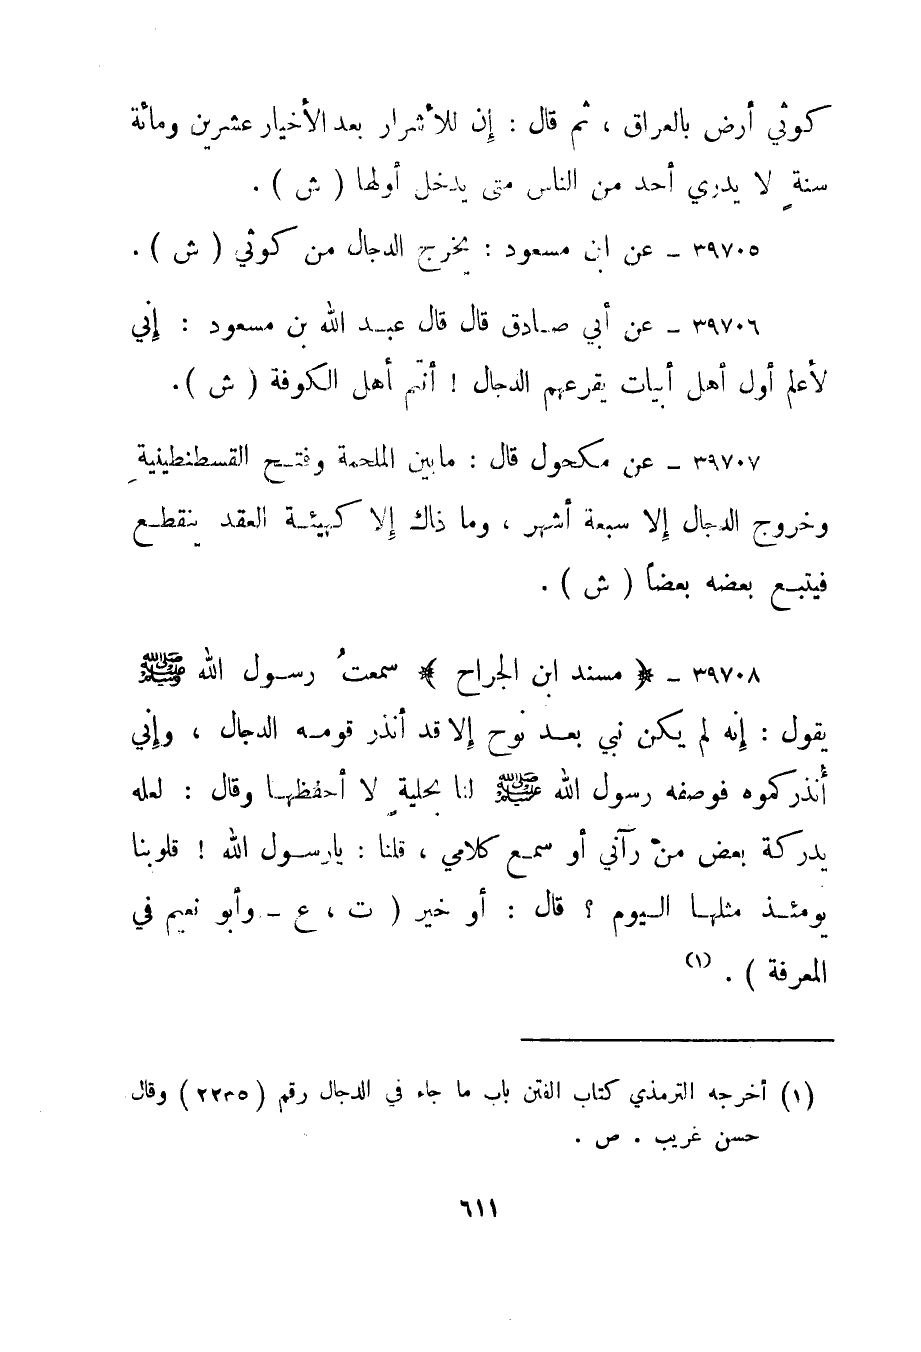 كوثي أرض بالعراق ، ثم قال : إن للأشرار بعد الأخيار عشرين ومائة
سنةٍ لا يدري أحد من الناس متى يدخل أولها ( ش ) .
٣٩٧٠٥ ـ عن ابن مسعود : يخرج الدجال من كوثي ( ش ) .
٣٩٧٠٦ ـ عن أبي صادق قال قال عبد الله بن مسعود : إني
لأعلم أول أهل أبيات يقرعهم الدجال ! أنتم أهل الكوفة ( ش ) .
٣٩٧٠٧ ـ عن مكحول قال : مابين الملحمة وفتح القسطنطينيةِ
وخروج الدجال إلا سبعة أشهر ، وما ذاك إلا كهيئة العقد ينقطع
فيتبع بعضه بعضاً ( ش ) .
٣٩٧٠٨ ـ ﴿ مسند ابن الجراح ﴾ سمعتُ رسول الله ﷺ
يقول : إنه لم يكن نبي بعد نوح إلا قد أنذر قومه الدجال ، وإني
أُنذركموه فوصفه رسول الله ﷺ لنا بحليةٍ لا أحفظها وقال : لعله
يدركة بعض منْ رآني أو سمع كلامي ، قلنا : يارسول الله ! قلوبنا
يومئذ مثلها اليوم ؟ قال : أو خير ( ت ، ع ـ وأبو نعيم في
المعرفة ) . (١)
(١) أخرجه الترمذي كتاب الفتن باب ما جاء في الدجال رقم ( ٢٢٣٥ ) وقال
حسن غريب . ص .
٦١١